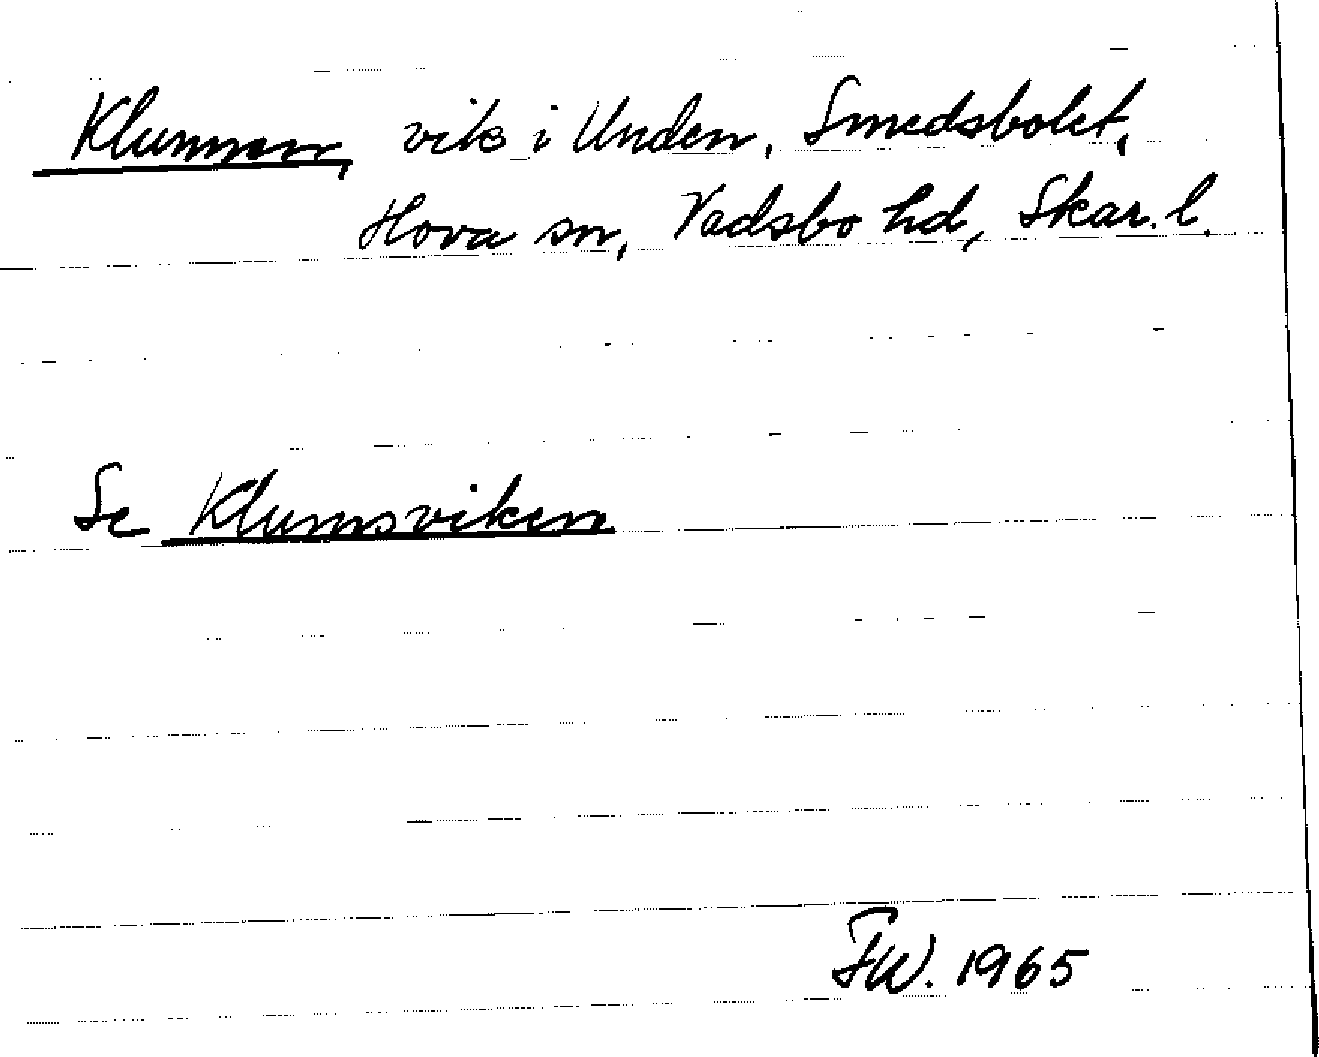 Klummen, vik i Unden, Smedsbolet,
Hova sn, Vadsbo hd, Skar. l.
Se Klumsviken
FW. 1965